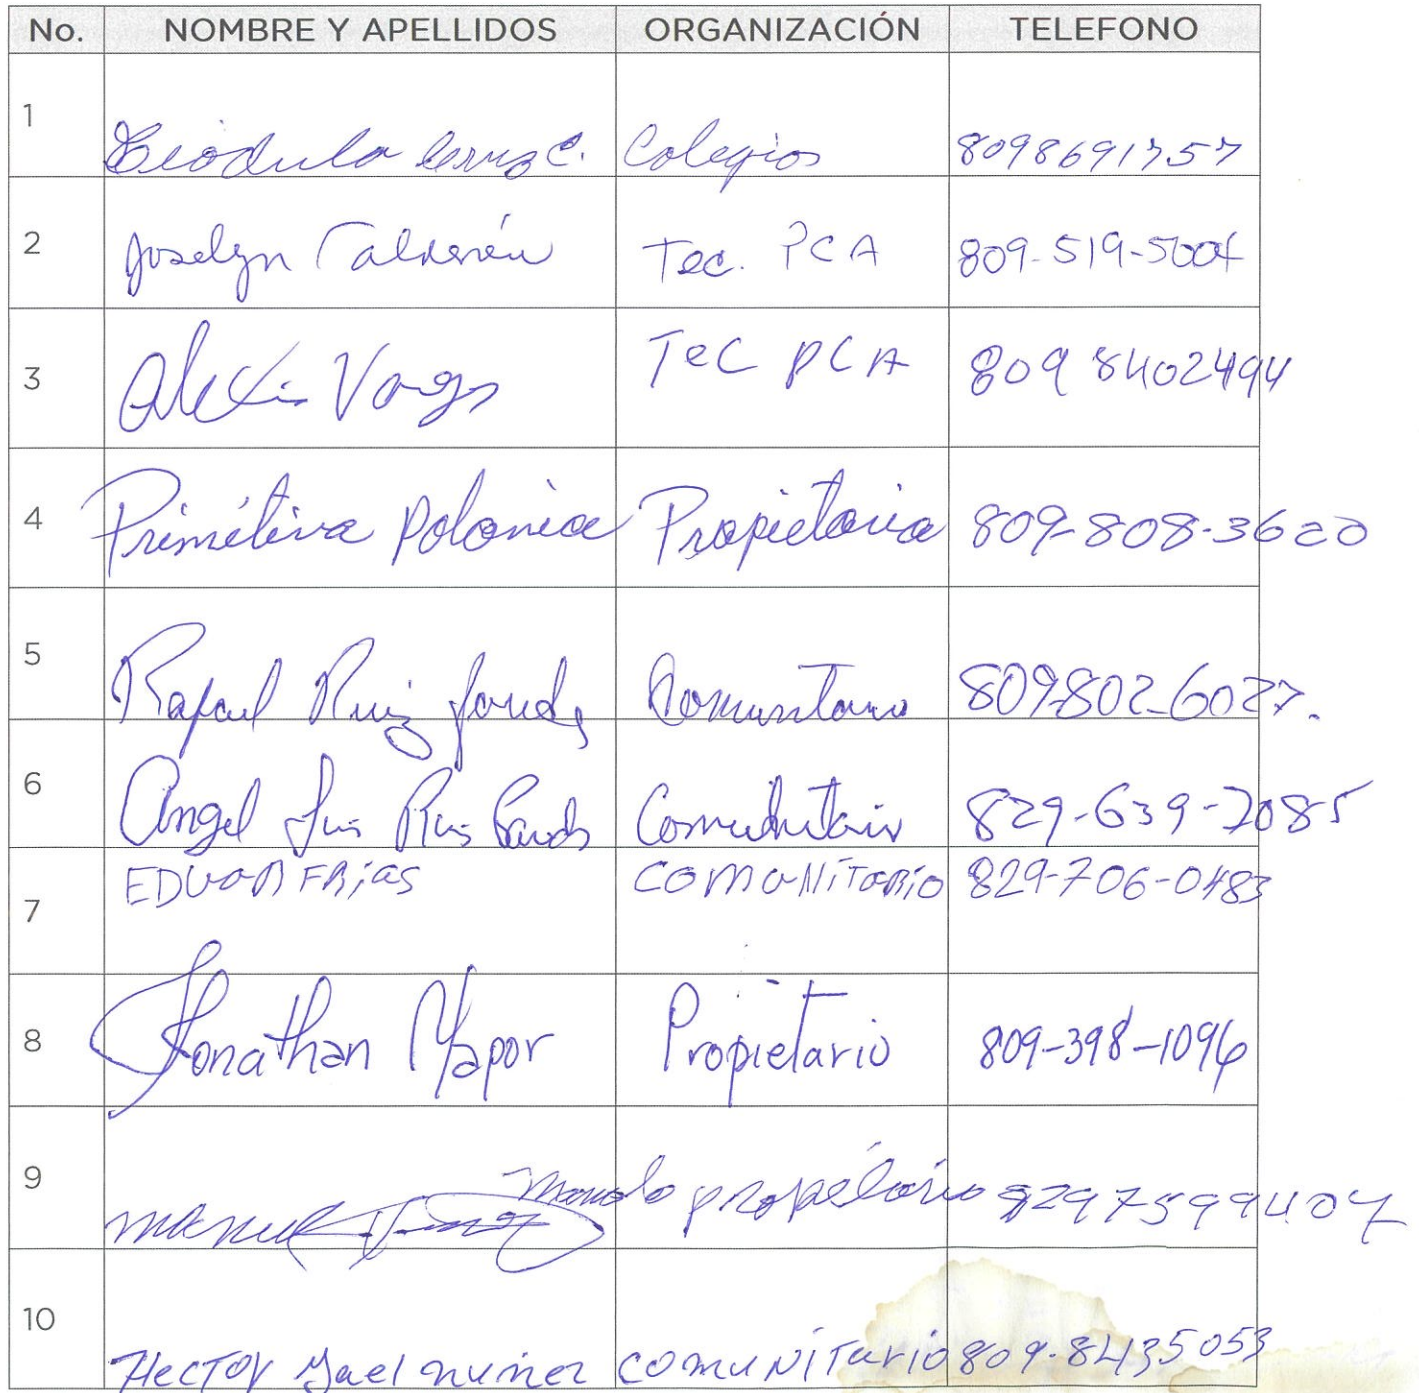 No. NOMBRE Y APELLIDOS ORGANIZACIÓN TELEFONO
1 Teódula Cruz C. Colegios 8098691757
2 Joselyn Calderón Tec. PCA 809-519-5004
3 Alexis Vargas Tec PCA 809 8402494
4 Primitiva Polanica Propietaria 809-808-3620
5 Rafael Ruiz Comunitario 809-802-6027.
6 Angel Luis Ruis Comunitario 829-639-7085
7 EDUAR FRiAS COMUNiTARiO 829-706-0483
8 Jhonathan Yapor Propietario 809-398-1096
9 Manuel propietario 8297599407
10 Hector Yael nuñez comunitario 809-8435053